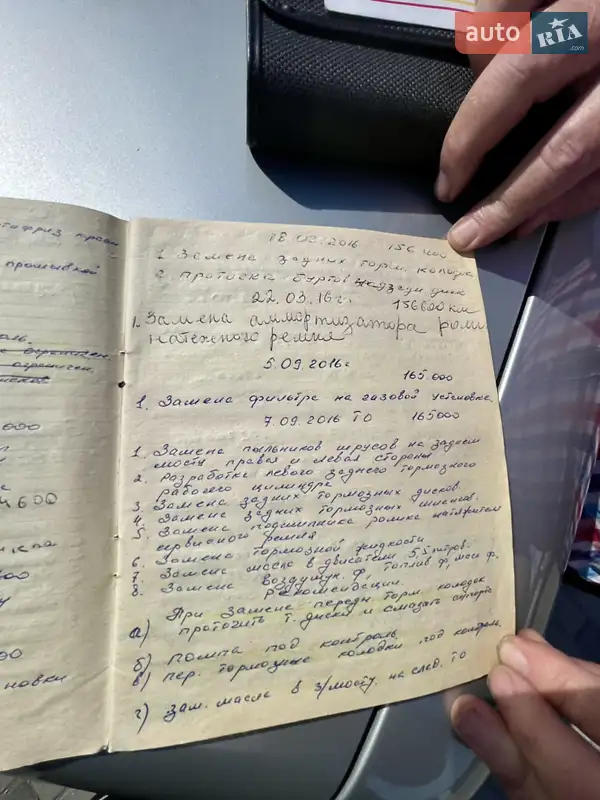 auto RIA .com
прошывкой
18.02.2016 156 400
1. Замена задних торм. колодк
2. Проточка буртов на задн диск
22.03.16 г. 156600 км
1. Замена аммортизатора роли
натежного ремня
5.09.2016 г
165.000
1. Замена фильтра на газовой установке
7.09.2016 ТО 165000
1. Замена пыльников шрусов на заднем
мосту правая и левая стороны
2. Разработка левого заднего тормозного
рабочего цилиндра
3. Замена задних тормозных дисков.
4. Замена задних тормозных шлангов.
5. Замена подшипника ролика натяжителя
сервисного ремня
6. Замена тормозной жидкости
7. Замена масло в двигатели 5,5 литров.
8. Замена воздушн. ф, топлив ф, масл ф.
Рекомендации.
а) При замене передн торм. колодок
проточить т. диски и смазать суппорта
б) Помпа под контроль
в) пер. тормозные колодки под контроль
г) зам. масла в з/мосту. на след. ТО
4600
новки